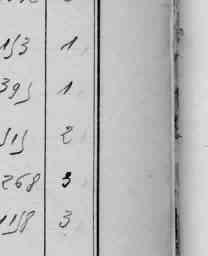 153 1
395 1
515 2
268 3
1158 3